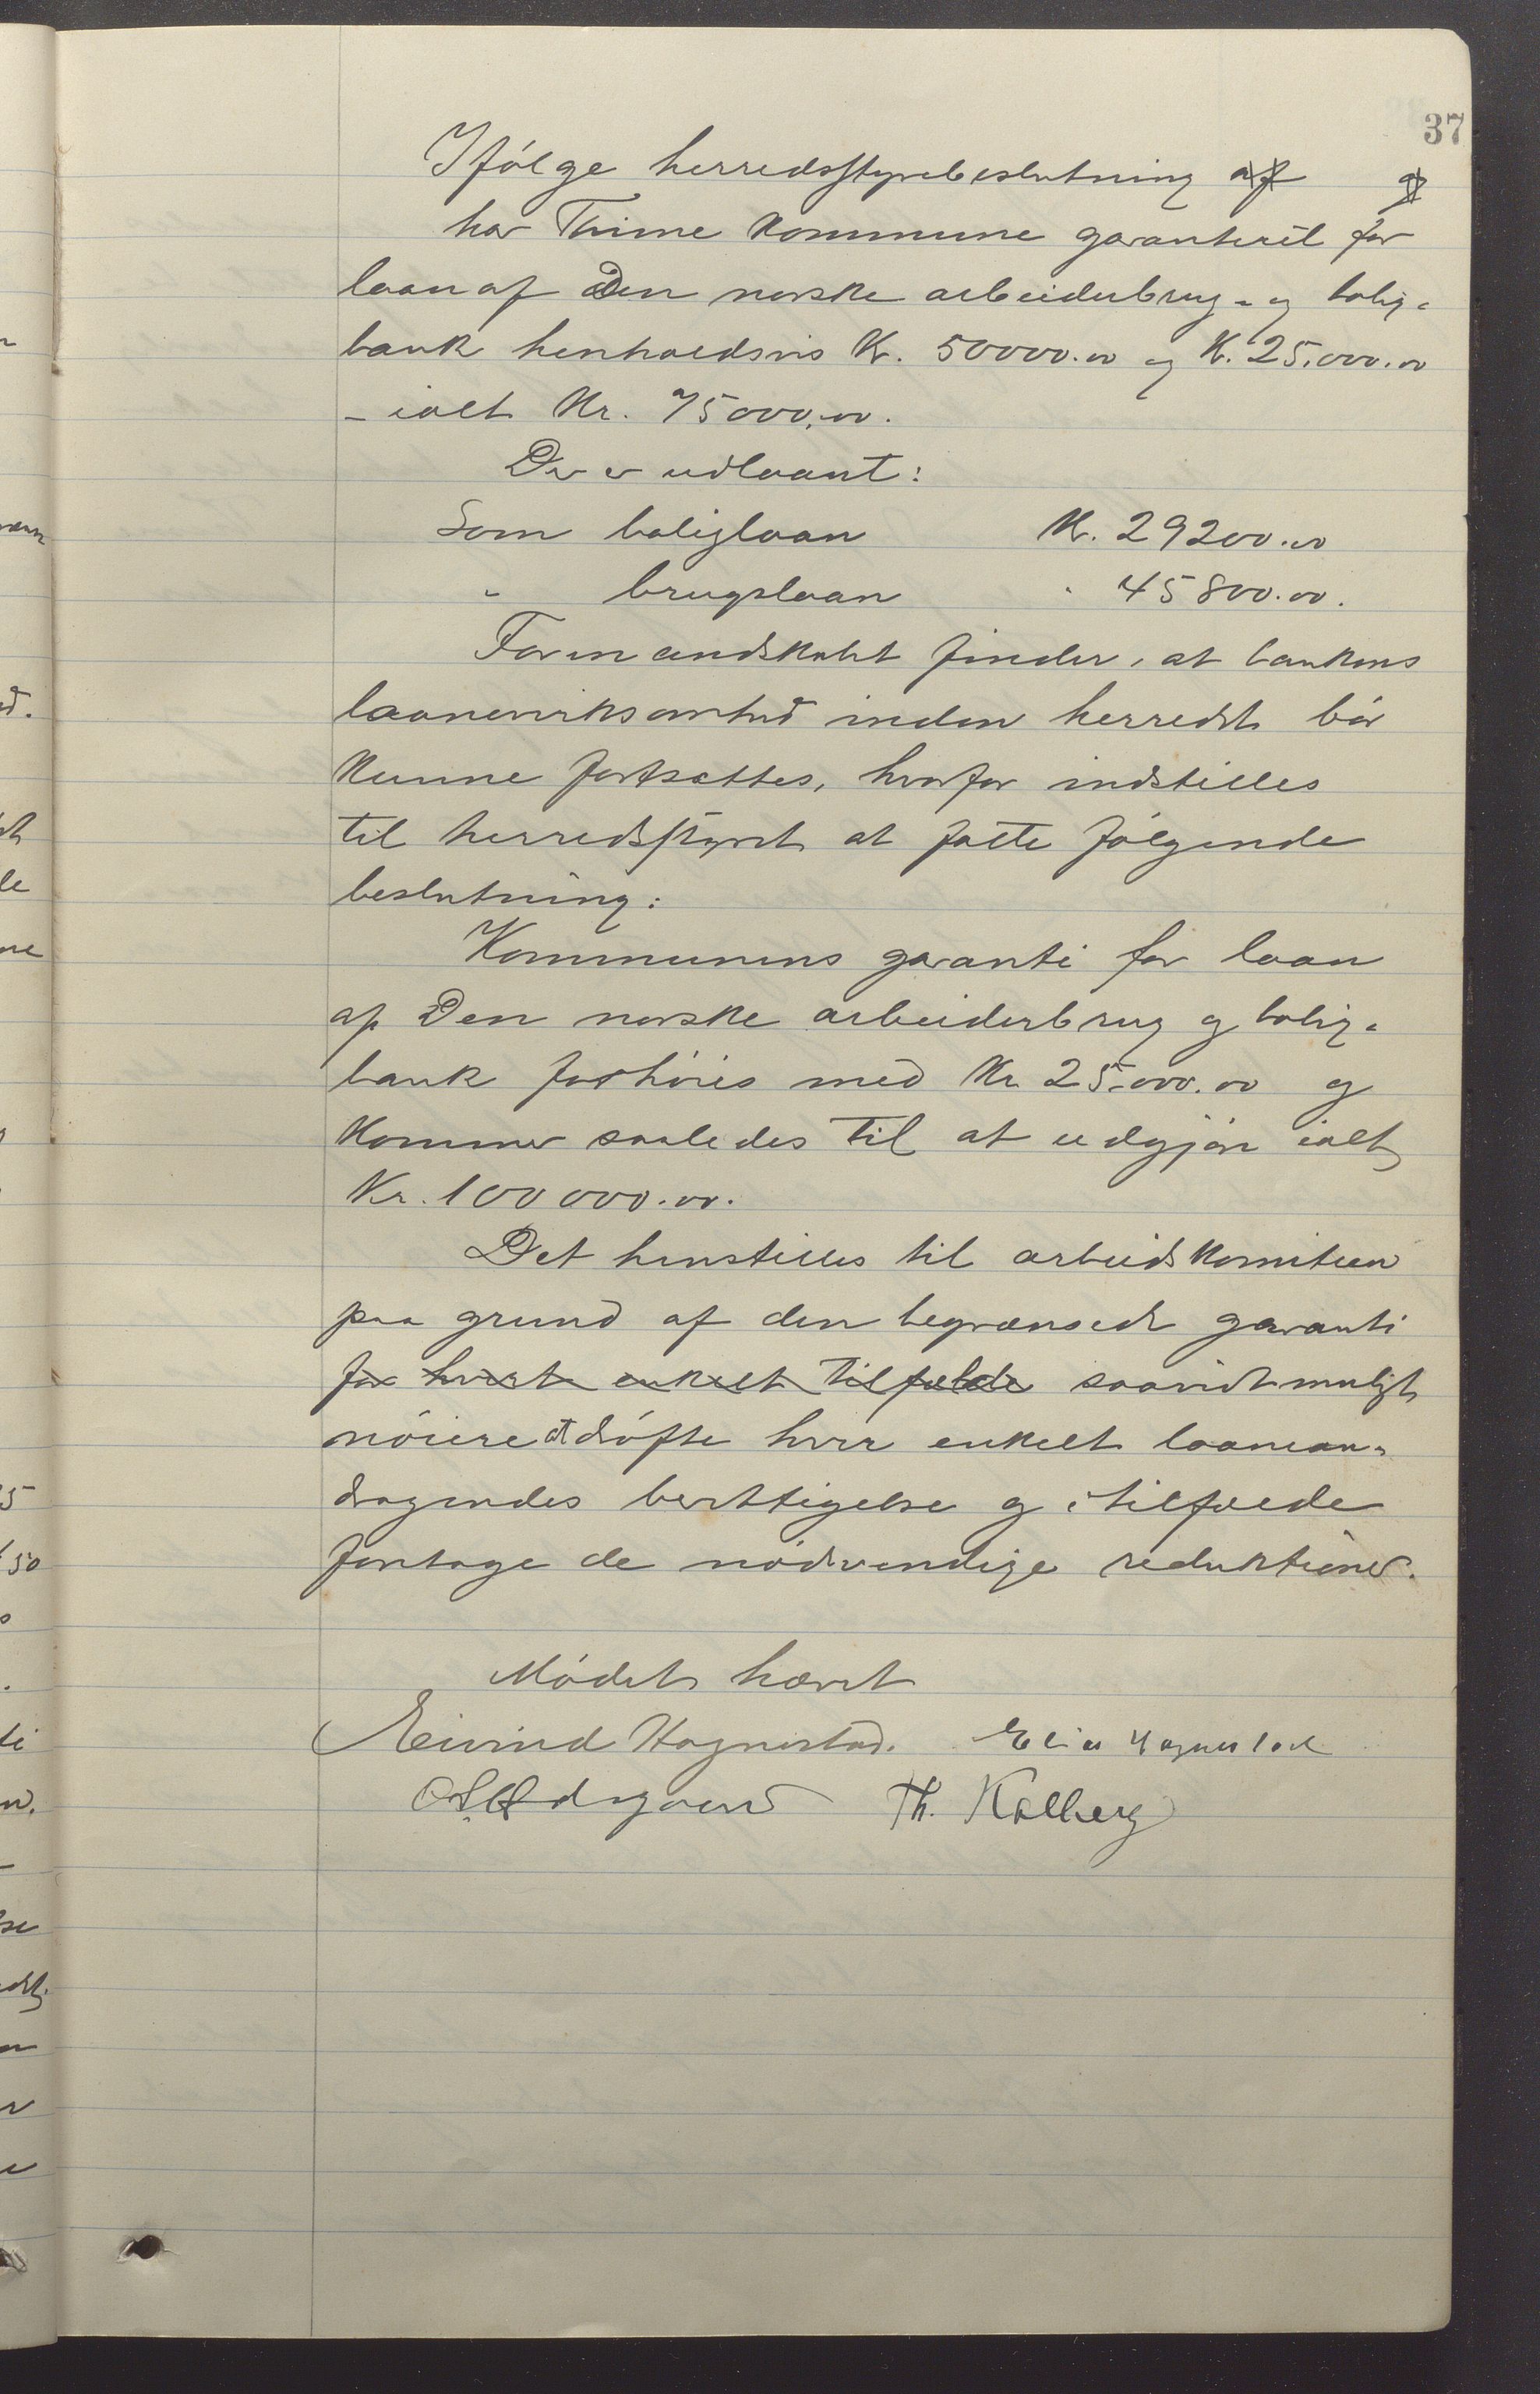 37
Ifølge herredsstyrebeslutning af og
har Thime Kommune garanteret for
laan af Den norske arbeiderbrug- og bolig-
bank henholdsvis Kr. 50000.00 og K. 25.000.00
- ialt Kr. 75000,00.
Der er udlaant:
Som boliglaan Kr. 29200.00
" brugslaan " 45800.00.
Formandskabet finder, at bankens
laanevirksomhed inden herredet bør
kunne fortsættes, hvorfor indstilles
til herredsstyret at fatte følgende
beslutning:
Kommunens garanti for laan
af Den norske arbeiderbrug og bolig-
bank forhøies med Kr 25.000.00 og
kommer saaledes til at udgjøre ialt
Kr. 100000.00.
Det henstilles til arbeidskomiteen
paa grund af den begrænsede garanti
for hvert enkelt tilfælde saavidt muligt
nøiere at drøfte hver enkelt laanean-
dragendes berettigelse og i tilfælde
foretage de nødvendige reduktioner.
Mødet hævet
Eivind Hognestad. Elias Hognestad
Th. Kalberg